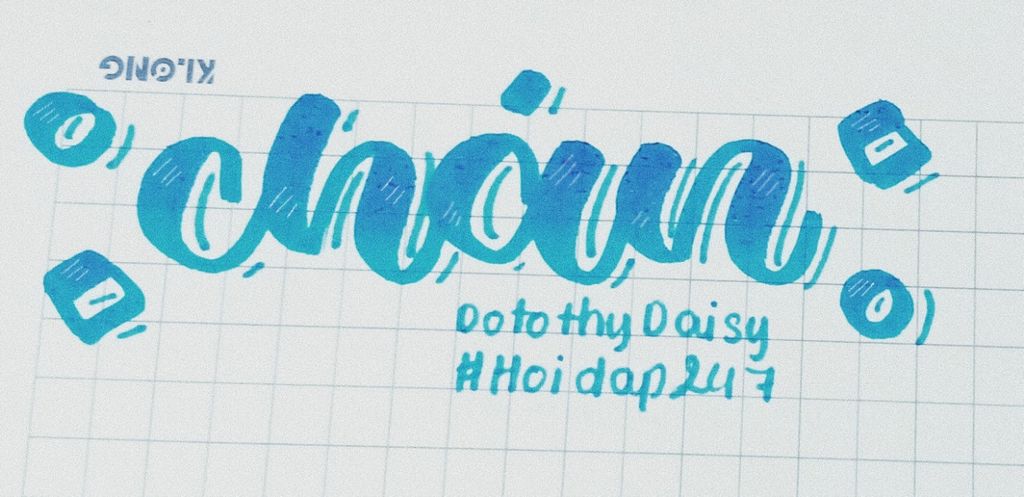 KLONG
chan
Dotothy Daisy
#Hoidap247